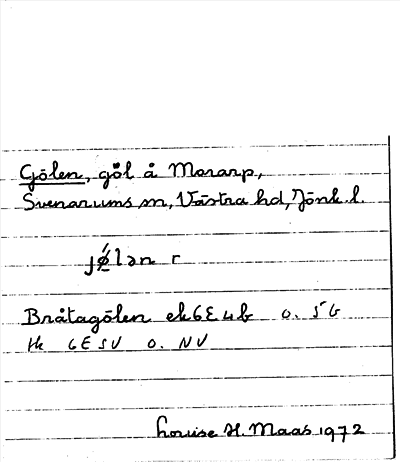 Gölen, göl å Morarp,
Svenarums sn, Västra hd, Jönk. l.
jǿ̲lən r
Bråtagölen ek6E4b o. 5G
Hk 6E SV o. NV
Louise H. Maas 1972